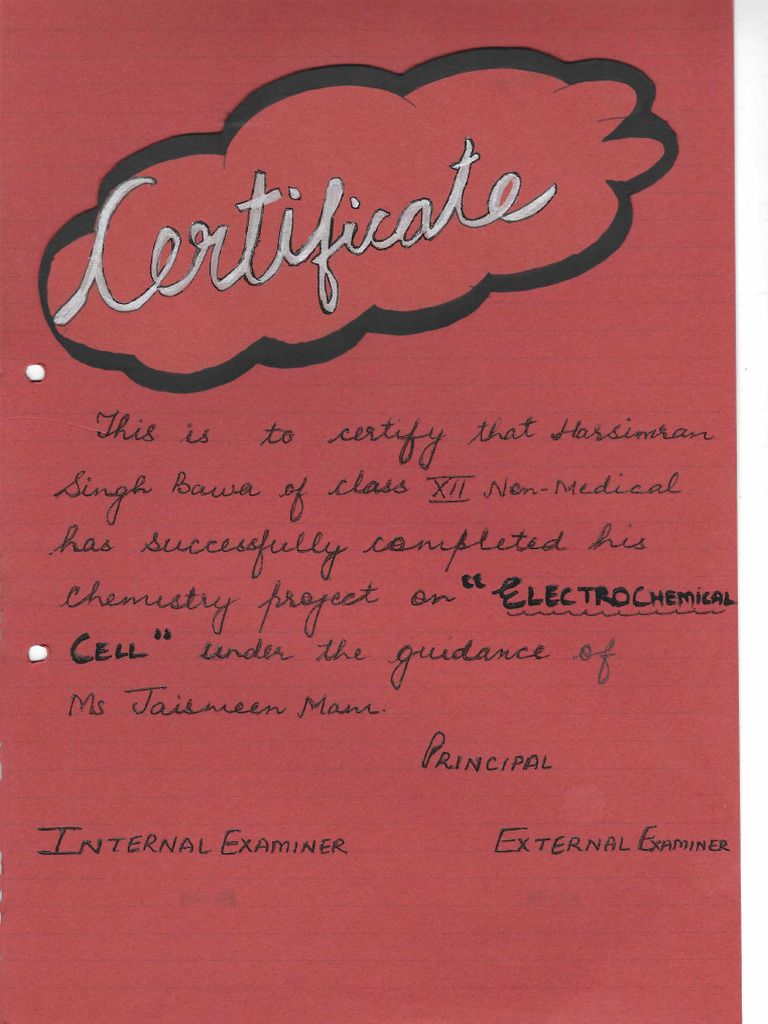 Certificate
This is to certify that Harsimran
Singh Bawa of class XII Non-Medical
has successfully completed his
chemistry project on "ELECTROCHEMICAL
CELL" under the guidance of
Ms Jaismeen Mam.
PRINCIPAL
INTERNAL EXAMINER EXTERNAL EXAMINER